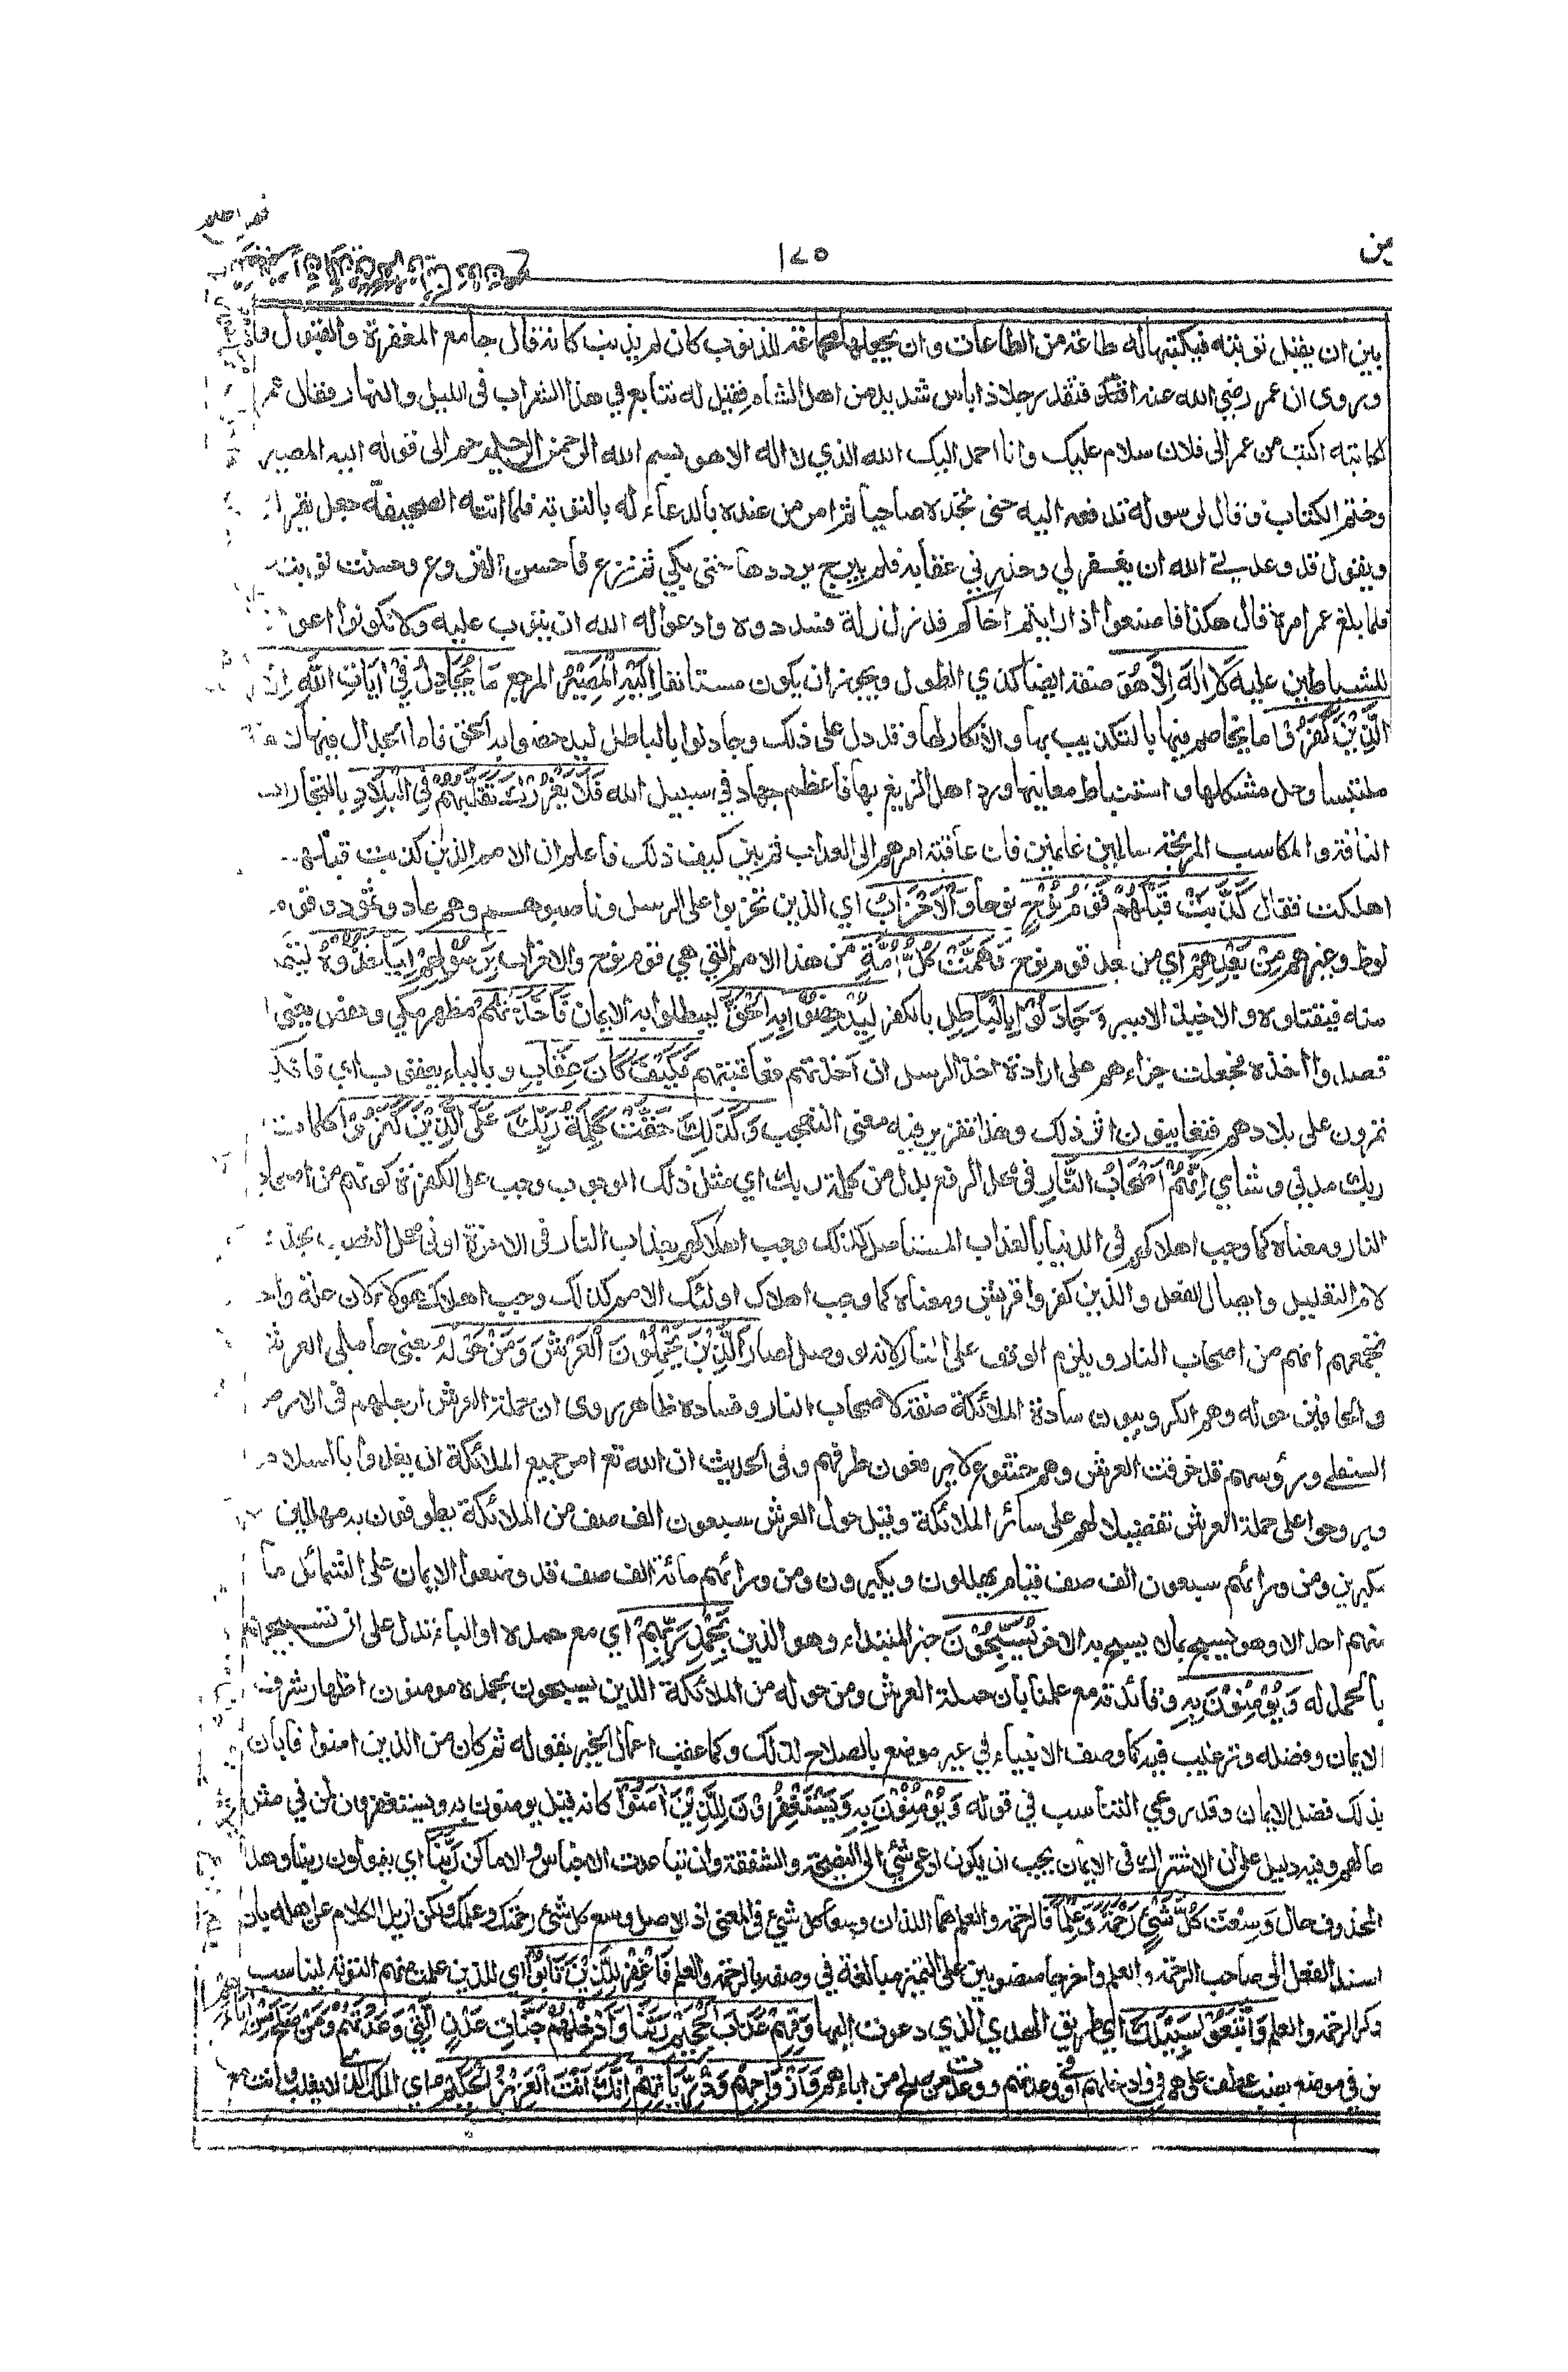 من
١٢٥
بين ان يقبل توبته فيكتبها له طاعة من الطاعات وان يجعلها محاءة للذنوب كان لم يذنب كانه قال جامع المغفرة والقبول
وروى ان عمر رضي الله عنه افتقد رجلا ذا باس شديد من اهل الشام فقيل له تتابع في هذا الشراب فى الليل والنهار فقال عمر
لكاتبه اكتب من عمر الى فلان سلام عليك وانا احمد اليك الله الذي لا اله الا هو بسم الله الرحمن الرحيم حم الى قوله اليه المصير
وختم الكتاب وقال لرسوله لا تدفعه اليه حتى تجده صاحيا ثم امر من عنده بالدعاء له بالتوبة فلما اتته الصحيفة جعل يقرا
ويقول قد وعدني الله ان يغفر لي وحذرني عقابه فلم يبرح يرددها حتى بكي ثم نزع فاحسن النزوع وحسنت توبته
فلما بلغ عمر امره قال هكذا فاصنعوا اذا رايتم اخاكم قد زل زلة فسددوه وادعوا له الله ان يتوب عليه ولا تكونوا اعوا
للشياطين عليه لَا اِلٰهَ اِلَّا هُوَ صفة ايضا كذي الطول ويجوز ان يكون مستانفا اِلَيْهِ الْمَصِيْرُ المرجع مَا يُجَادِلُ فِيْ اٰيَاتِ اللّٰهِ اِلَّا
الَّذِيْنَ كَفَرُوْا ما يخاصم فيها بالتكذيب بها والانكار لها وقد دل على ذلك وجادلوا بالباطل ليدحضوا به الحق فاما الجدال فيها
ملتبسا وحل مشكلها واستنباط معانيها ورد اهل الزيغ بها فاعظم جهاد في سبيل الله فَلَا يَغْرُرْكَ تَقَلُّبُهُمْ فِي الْبِلَادِ بالتجارات
النافقة والمكاسب المربحة سالمين غانمين فان عاقبة امرهم الى العذاب ثم بين كيف ذلك فاعلم ان الامم الذين كذبت قبلهم
اهلكت فقال كَذَّبَتْ قَبْلَهُمْ قَوْمُ نُوْحٍ نوحا وَالْاَحْزَابُ اي الذين تحزبوا على الرسل وناصبوهم وهم عاد وثمود وقوم
لوط وغيرهم مِنْ بَعْدِهِمْ اي من بعد قوم نوح وَهَمَّتْ كُلُّ اُمَّةٍ من هذا الامم التي هي قوم نوح والاحزاب بِرَسُوْلِهِمْ لِيَاْخُذُوْهُ ليتمكنوا
منه فيقتلوه والاخيذ الاسير وَجَادَلُوْا بِالْبَاطِلِ بالكفر لِيُدْحِضُوْا بِهِ الْحَقَّ ليبطلوا به الايمان فَاَخَذْتُهُمْ مظهر مكي وحفص يعني
قصدوا اخذه فجعلت جزاءهم على ارادة اخذ الرسل ان اخذتهم فعاقبتهم فَكَيْفَ كَانَ عِقَابِ وبالياء يعقوب اي فانكم
تمرون على بلادهم فتعاينون اثر ذلك وهذا تقرير فيه معنى التعجيب وَكَذٰلِكَ حَقَّتْ كَلِمَةُ رَبِّكَ عَلَى الَّذِيْنَ كَفَرُوْا كلمات
ربك مدني وشامي اَنَّهُمْ اَصْحَابُ النَّارِ فى محل الرفع بدل من كلمة ربك اي مثل ذلك الوجوب وجب على الكفرة كونهم من اصحاب
النار ومعناه كما وجب اهلاكهم فى الدنيا بالعذاب المستاصل كذلك وجب اهلاكهم بعذاب النار فى الاخرة او فى محل النصب بحذف
لام التعليل وايصال الفعل والذين كفروا قريش ومعناه كما وجب اهلاك اولئك الامم كذلك وجب اهلاك هولاء لان علة واحدة
تجمعهم انهم من اصحاب النار ويلزم الوقف على النار لانه لو وصل لصار اَلَّذِيْنَ يَحْمِلُوْنَ الْعَرْشَ وَمَنْ حَوْلَهُ يعنى حاملي العرش
والحافين حوله وهم الكروبيون سادة الملائكة صفة لاصحاب النار وفساده ظاهر روى ان حملة العرش ارجلهم فى الارض
السفلى ورؤوسهم قد خرقت العرش وهم خشوع لا يرفعون طرفهم وفى الحديث ان الله تع امر جميع الملائكة ان يغدوا بالسلام
ويروحوا على حملة العرش تفضيلا لهم على سائر الملائكة وقيل حول العرش سبعون الف صف من الملائكة يطوفون به مهللين
مكبرين ومن ورائهم سبعون الف صف قيام يهللون ويكبرون ومن ورائهم مائة الف صف قد وضعوا الايمان على الشمائل ما
منهم احد الا وهو يسبح بما لا يسبح به الاخر يُسَبِّحُوْنَ خبر المبتداء وهو الذين بِحَمْدِ رَبِّهِمْ اي مع حمده او الباء تدل على ان تسبيحهم
بالحمد له وَيُؤْمِنُوْنَ بِهِ وفائدته مع علمنا بان حملة العرش ومن حوله من الملائكة الذين يسبحون بحمده مومنون اظهار شرف
الايمان وفضله وترغيب فيه كما وصف الانبياء في غير موضع بالصلاح لذلك وكما عقب اعمال الخير بقوله ثم كان من الذين امنوا فابان
بذلك فضل الايمان وقد روعي التناسب في قوله وَيُؤْمِنُوْنَ بِهِ وَيَسْتَغْفِرُوْنَ لِلَّذِيْنَ اٰمَنُوْا كانه قيل يومنون به ويستغفرون لمن في مثل
حالهم وفيه دليل على ان الاشتراك فى الايمان يجب ان يكون ادعى شيء الى النصيحة والشفقة وان تباعدت الاجناس والاماكن رَبَّنَا اي يقولون ربنا وهذا
المحذوف حال وَسِعْتَ كُلَّ شَيْءٍ رَّحْمَةً وَّعِلْمًا فالرحمة والعلم هما اللذان وسعا كل شيء فى المعنى اذ الاصل وسع كل شيء رحمتك وعلمك ولكن ازيل الكلام عن اصله بان
اسند الفعل الى صاحب الرحمة والعلم واخرجا منصوبين على التمييز مبالغة في وصفه بالرحمة والعلم فَاغْفِرْ لِلَّذِيْنَ تَابُوْا اي للذين علمت منهم التوبة ليناسب
ذكر الرحمة والعلم وَاتَّبَعُوْا سَبِيْلَكَ اي طريق الهدي الذي دعوت اليها وَقِهِمْ عَذَابَ الْجَحِيْمِ رَبَّنَا وَاَدْخِلْهُمْ جَنَّاتِ عَدْنِ الَّتِيْ وَعَدْتَّهُمْ وَمَنْ صَلَحَ مِنْ اٰبَاءِهِمْ
من في موضع نصب عطف على هم في وادخلهم او في وعدتهم ووعدت من صلح من اباءهم وَاَزْوَاجِهِمْ وَذُرِّيَّاتِهِمْ اِنَّكَ اَنْتَ الْعَزِيْزُ الْحَكِيْمُ اي الملك الذي لا يغلب وانت مع